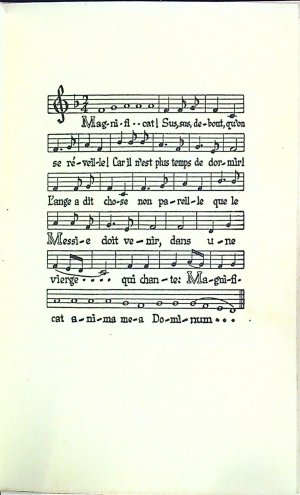 Mag-ni-fi--cat! Sus, sus, de-bout, qu'on
se ré-veil-le! Car il n'est plus temps de dor-mir!
L'ange a dit cho-se non pa-reil-le que le
Mes-si-e doit ve-nir, dans u-ne
vierge .... qui chan-te: Ma-gni-fi-
cat a-ni-ma me-a Do-mi-num...